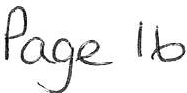 Page 16